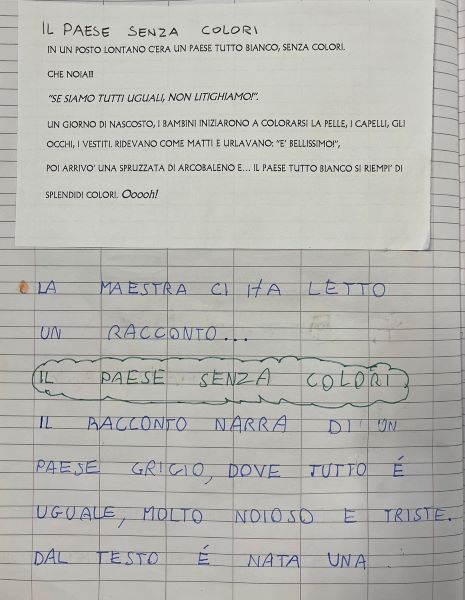 IL PAESE SENZA COLORI
IN UN POSTO LONTANO C'ERA UN PAESE TUTTO BIANCO, SENZA COLORI.
CHE NOIA!!!
"SE SIAMO TUTTI UGUALI, NON LITIGHIAMO!".
UN GIORNO DI NASCOSTO, I BAMBINI INIZIARONO A COLORARSI LA PELLE, I CAPELLI, GLI
OCCHI, I VESTITI. RIDEVANO COME MATTI E URLAVANO: "E' BELLISSIMO!",
POI ARRIVO' UNA SPRUZZATA DI ARCOBALENO E... IL PAESE TUTTO BIANCO SI RIEMPI' DI
SPLENDIDI COLORI. Ooooh!
LA MAESTRA CI HA LETTO
UN RACCONTO...
IL PAESE SENZA COLORI
IL RACCONTO NARRA DI UN
PAESE GRIGIO, DOVE TUTTO É
UGUALE, MOLTO NOIOSO E TRISTE.
DAL TESTO É NATA UNA